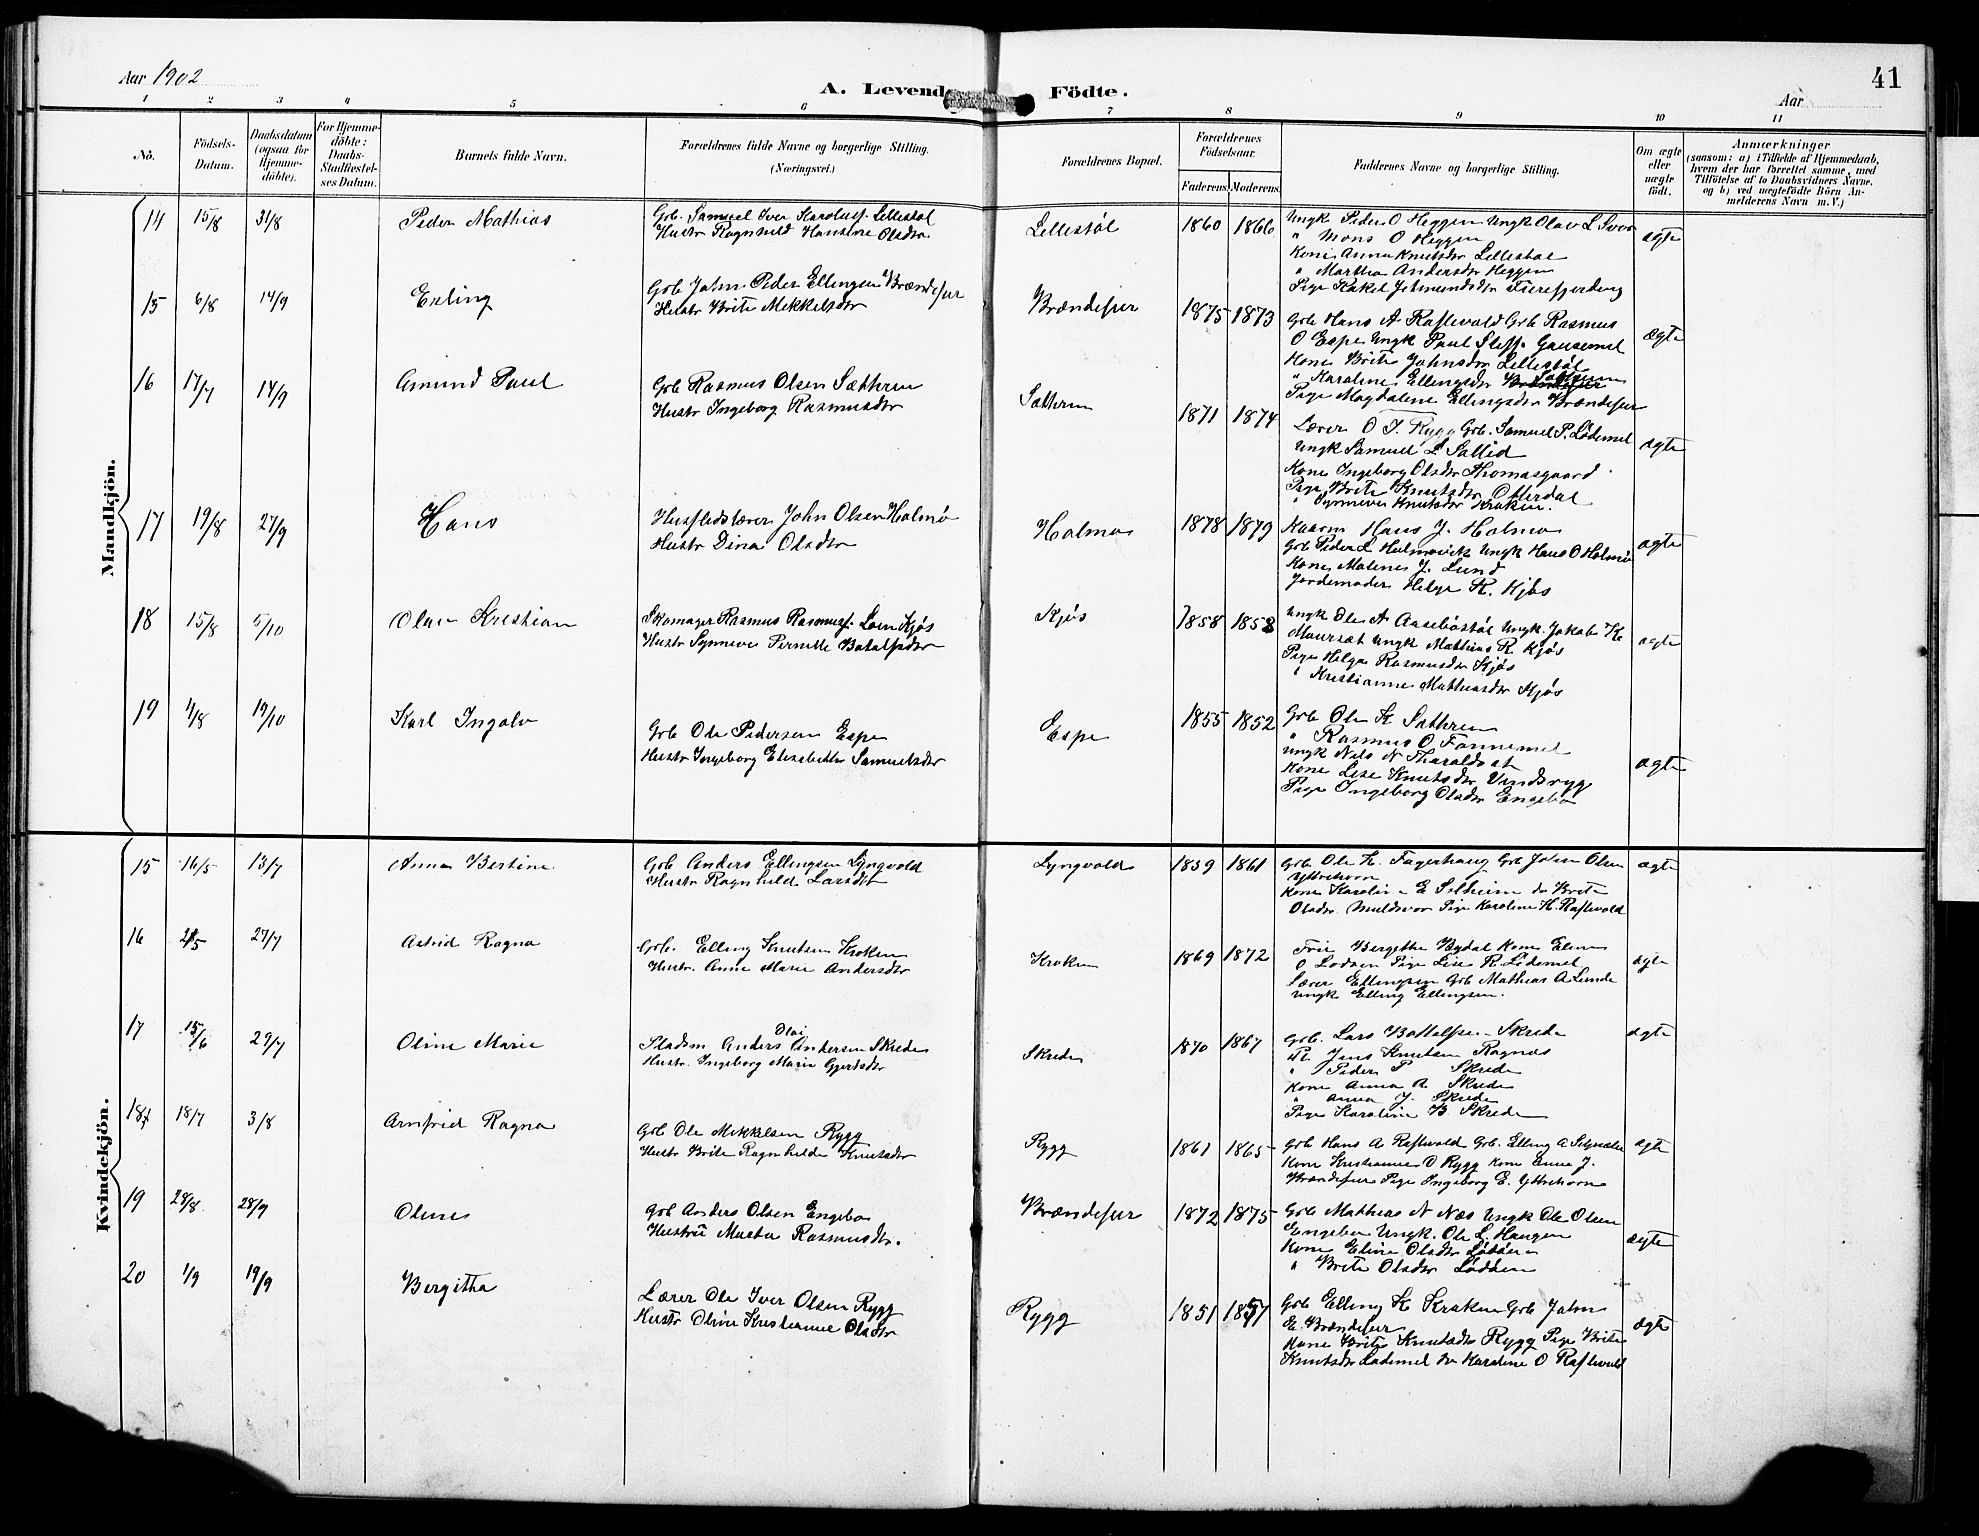 Aar 1902
A. Levende Födte.
Aar
41
1 2 3 4 5 6 7 8 9 10 11
No.
Födsels-Datum.
Daabsdatum (ogsaa for Hjemmedöbte).
For Hjemmedöbte: Daabs-Stadfæstelses Datum.
Barnets fulde Navn.
Forældrenes fulde Navne og borgerlige Stilling.
(Næringsvei.)
Forældrenes Bopæl.
Forældrenes Födselsaar.
Faderens. Moderens.
Faddernes Navne og borgerlige Stilling.
Om ægte eller uægte födt.
Anmærkninger
(saasom: a) i Tilfælde af Hjemmedaab, hvem der har forrettet samme, med Tilföielse af to Daabsvidners Navne, og b) ved uægtefödte Börn Anmelderens Navn m. V.)
Mandkjön.
14 15/8 31/8 Peder Mathias
Grb. Samuel Iver Karolusf. Lillestøl
Hustr Ragnhild Hansine Olsdtr.
Lillestøl 1860 1866
Ungk Peder O Heggen Ungk Olav L Svor
" Mons O Heggen
Kone Anna Knutsdtr Lillestøl
" Martha Andersdtr Heggen
Pige Rakel Jetmundsdtr
ægte
15 6/8 14/9 Erling
Grb John Peder Ellingsen Brændefur
Hustr Brite Mikkelsdtr
Brændefur 1875 1873
Grb Hans A Raftevold Grb Rasmus
O Espe Ungk Paul Steff. Gausemel
Kone Brite Johnsdtr Lillestøl
" Karoline Ellingsdtr Sæthren
Pige Magdalene Ellingsdtr Brændefur
ægte
16 17/7 14/9 Amund Paul
Grb Rasmus Olsen Sæthren
Hustr Ingeborg Rasmusdtr
Sæthren 1871 1874
Lærer O I. Rygg Grb. Samuel P. Lødemel
Ungk Samuel L Sallid
Kone Ingeborg Olsdtr Thomasgaard
Pige Brite Knutsdtr Otterdal
" Synneve Knutsdtr Kroken.
ægte
17 19/8 27/9 Hans
Husflidslærer John Olsen Holmø
Hustr Dina Olsdtr
Holmø 1878 1879
Kaarm Hans J. Holmø
Grb Peder L Holmøvik Ungk Hans O Holmø
Kone Malene J. Lund
Jordemoder Helge R. Kjøs
ægte
18 15/8 5/10 Olav Kristian
Skomager Rasmus Rasmusf. Loen Kjøs
Hustr Synneve Pernille Botolfsdtr
Kjøs 1858 1858
Ungk Ole A Aaseböstøl Ungk. Jakob K
Maursæt Ungk Mathias R Kjøs
Pige Helga Rasmusdtr Kjøs
" Kristianne Mathiasdtr Kjøs
ægte
19 4/8 19/10 Karl Ingolv
Grb Ole Pedersen Espe
Hustr Ingeborg Elisabeth Samuelsdtr
Espe 1855 1852
Grb Ole K Sæthren
" Rasmus O Tonnemel
Ungk Nils N Tharaldsæt
Kone Lise Knutsdtr Vindsrygg
Pige Ingeborg Olsdtr Engebø
ægte
Kvindekjön.
15 16/5 13/7 Anna Bertine
Grb Anders Ellingsen Lyngvold
Hustr Ragnhild Larsdt
Lyngvold 1859 1861
Grb Ole K. Fagerhaug Grb John Olsen
Yttrehorn
Kone Karoline E Solheim do Brite
Olsdtr. Muldsvor Pige Karoline H. Raftevold
ægte
16 27/7 Astrid Ragna
Grb. Elling Knutsen Kroken
Hustr. Anne Marie Andersdtr
Kroken 1869 1872
Frue Bergithe Nydal Kone Eline
O Lødøen Pige Lise R. Lødemel
Lærer Ellingsen Grb Mathias A Lunde
Ungk Elling Ellingsen.
ægte
17 15/6 29/7 Oline Marie
Pladsm Anders Olai Andersen Skrede
Hustr. Ingeborg Marie Gjertsdtr
Skrede 1870 1867
Grb. Lars Bottolfsen Skrede
Jens Knutsen Ragnæs
" Peder P Skrede
Kone Anna A. Skrede
" Anna J. Skrede
Pige Karoline B Skrede
ægte
18 18/7 3/8 Arnfrid Ragna
Grb Ole Mikkelsen Rygg
Hustr Brite Ragnhilde Knutsdtr
Rygg 1861 1865
Grb Hans A Raftevold Grb. Elling A
Kone Kristianne O Rygg Kone Anne J.
Brændefur Pige Ingeborg E. Yttrehorn
ægte
19 28/8 28/9 Oline
Grb Anders Olsen Engebø
Hustru Marta Rasmusdtr.
Brændefur 1872 1875
Grb Mathias N Næs Ungk Ole Olsen
Engebø Ungk. Ole L. Haugen
Kone Eline Olsdtr Lødøen
" Brite Olsdtr Lødøen
ægte
20 1/9 19/9 Bergitha
Lærer Ole Iver Olsen Rygg
Hustr Oline Kristianne Olsdtr
Rygg 1851 1857
Grb Elling K Kroken Grb John
E. Brændefur
Kone Brite Knutsdtr Rygg Pige Brite
Knutsdtr Lødemel do Karoline O Raftevold
ægte